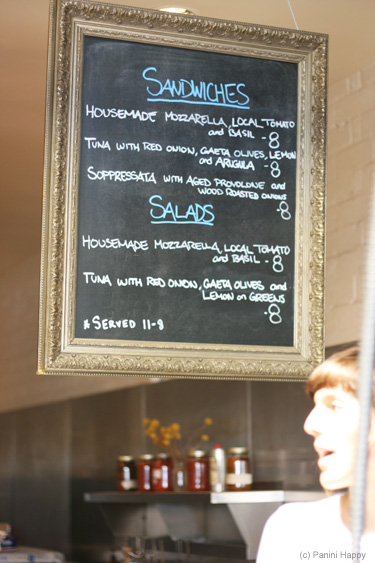 SANDWICHES
HOUSEMADE MOZZARELLA, LOCAL TOMATO
and BASIL - 8
TUNA WITH RED ONION, GAETA OLIVES, LEMON
and ARUGULA - 8
SOPPRESSATA WITH AGED PROVOLONE and
WOOD ROASTED ONIONS
- 8
SALADS
HOUSEMADE MOZZARELLA, LOCAL TOMATO
and BASIL - 8
TUNA WITH RED ONION, GAETA OLIVES and
LEMON on GREENS
- 8
* SERVED 11-8
(c) Panini Happy